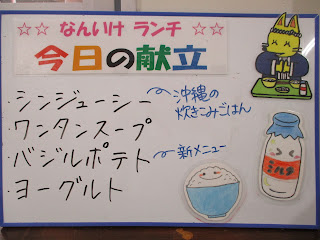 ☆☆ なんいけ ランチ ☆☆
今日の献立
・シンジューシー 〜沖縄の
炊きこみごはん
・ワンタンスープ
・バジルポテト 〜新メニュー
・ヨーグルト
ミルク